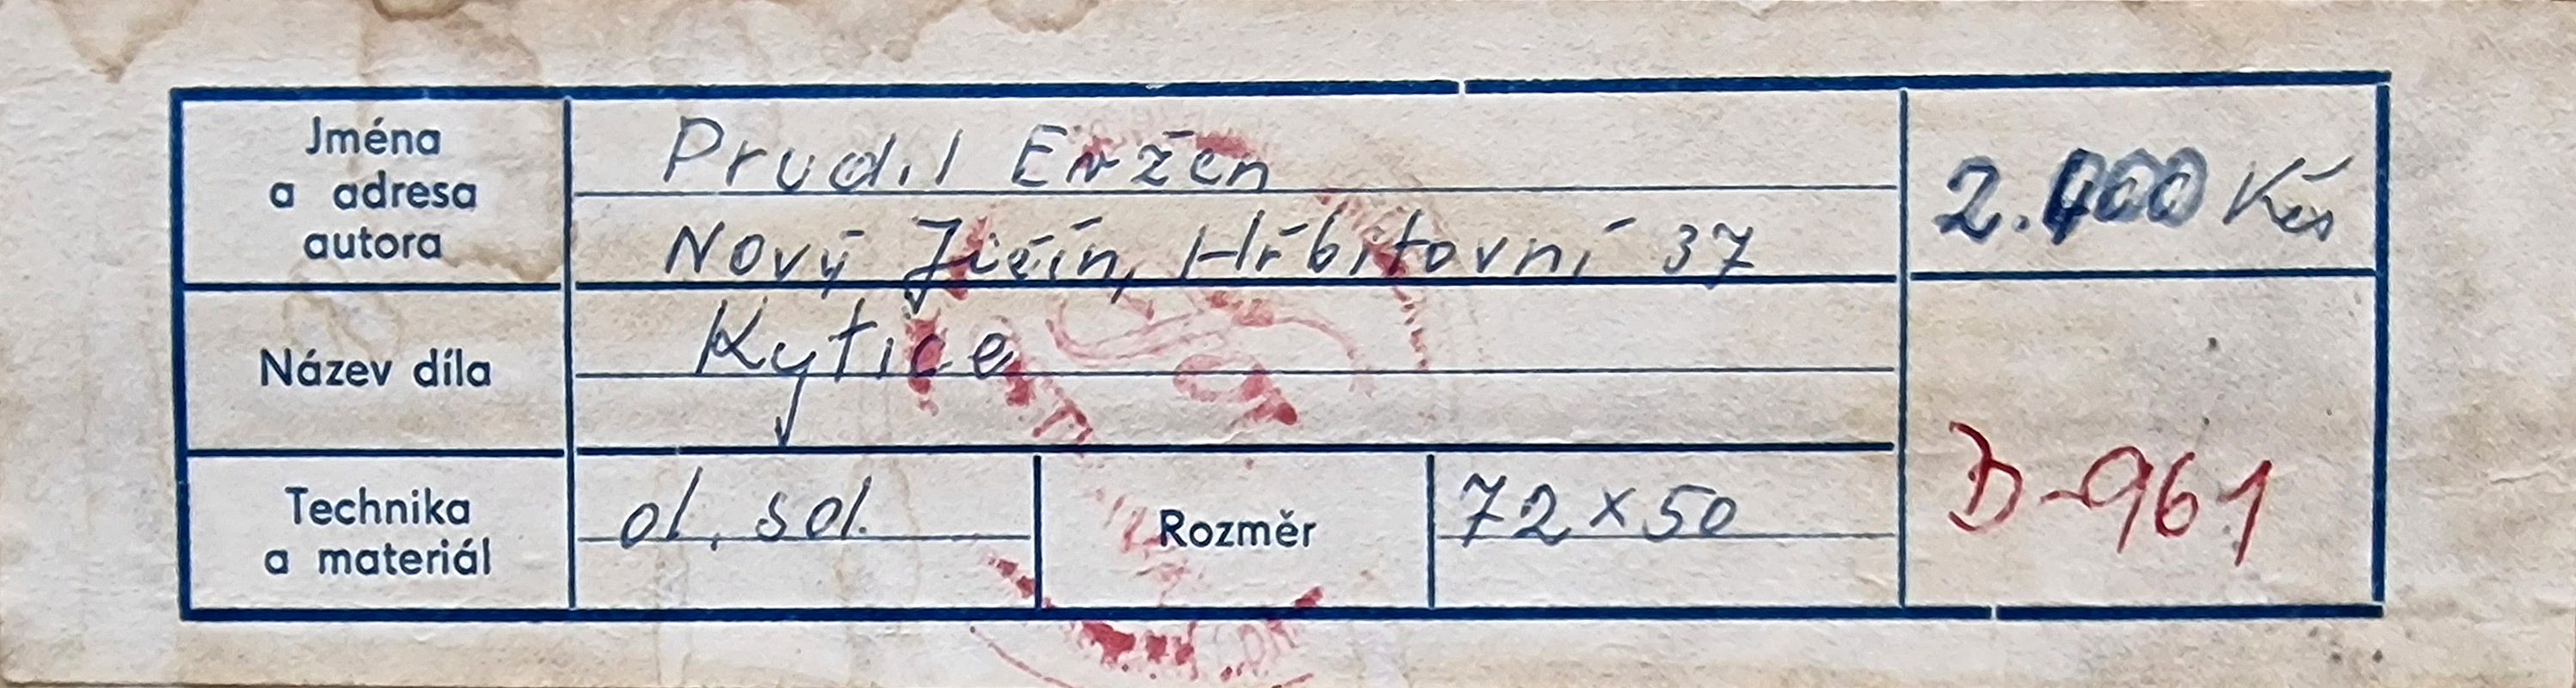 Jména
a adresa
autora
Prudil Evžen
Nový Jičín, Hřbitovní 37
2.400 Kčs
Název díla
Kytice
Technika
a materiál
ol. sol.
Rozměr
72x50
D-961